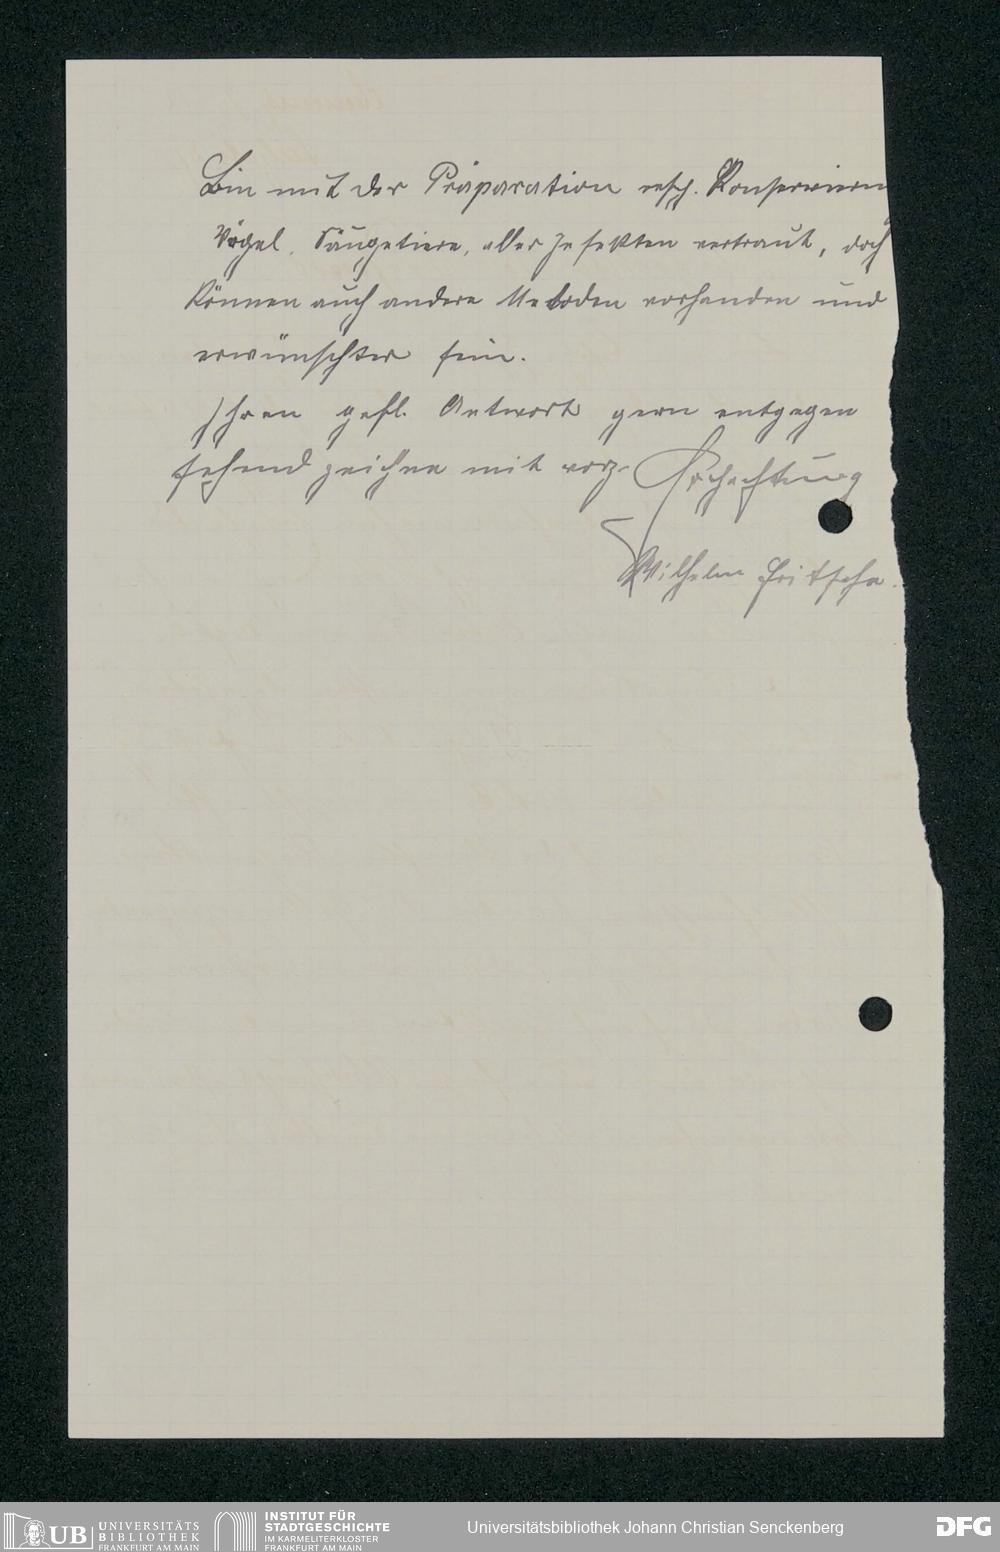 Bin mit der Präparation resp. Konservieren
Vögel, Säugetiere, aller Insekten vertraut, doch
können auch andere Metoden vorhanden und
erwünschter sein.
Ihren gefl. Antwort gern entgegen
sehend zeichne mit vorz. Hochachtung
Wilhelm Fritsche.
UB UNIVERSITÄTS
BIBLIOTHEK
FRANKFURT AM MAIN
INSTITUT FÜR
STADTGESCHICHTE
IM KARMELITERKLOSTER
FRANKFURT AM MAIN
Universitätsbibliothek Johann Christian Senckenberg
DFG